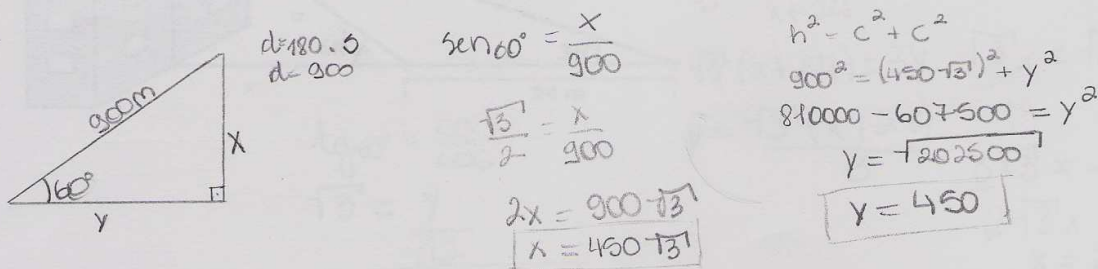 d=180.5
d=900
900m
60°
x
y
sen60° = x/900
√3/2 = x/900
2x = 900√3
x = 450√3
h² = c² + c²
900² = (450√3)² + y²
810000 - 607500 = y²
y = √202500
y = 450